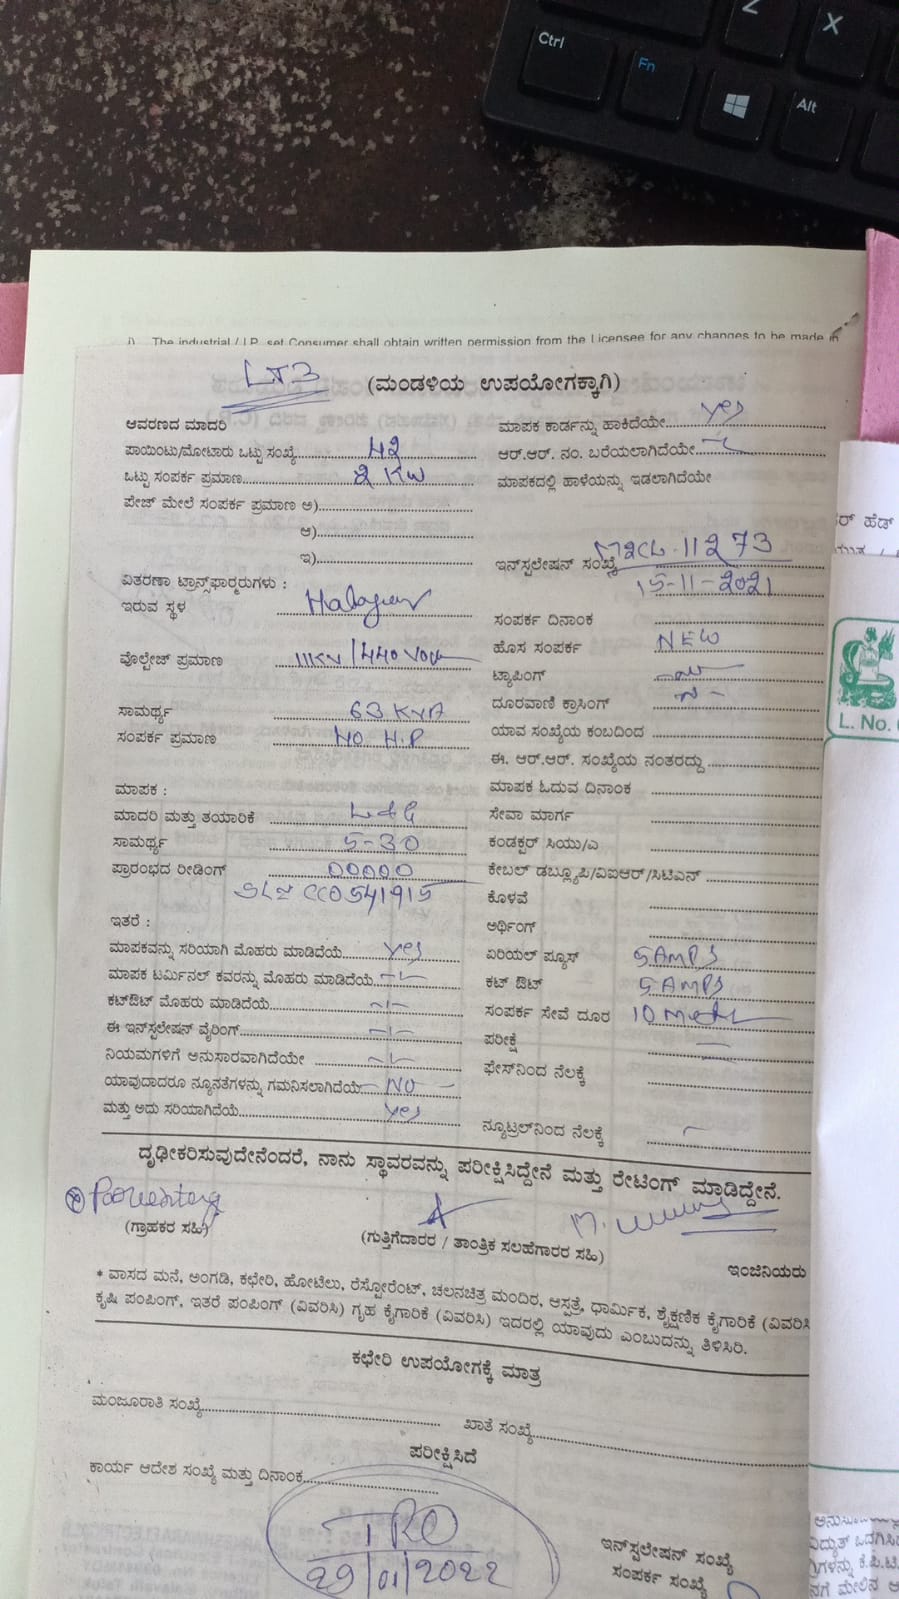 Ctrl
Fn
Z
X
Alt
i) The industrial / I.P. set Consumer shall obtain written permission from the Licensee for any changes to be made in
LT3
(ಮಂಡಳಿಯ ಉಪಯೋಗಕ್ಕಾಗಿ)
ಆವರಣದ ಮಾದರಿ
ಪಾಯಿಂಟು/ಮೋಟಾರು ಒಟ್ಟು ಸಂಖ್ಯೆ 42
ಒಟ್ಟು ಸಂಪರ್ಕ ಪ್ರಮಾಣ 2 KW
ಪೇಜ್ ಮೇಲೆ ಸಂಪರ್ಕ ಪ್ರಮಾಣ ಅ)
ಆ)
ಇ)
ವಿತರಣಾ ಟ್ರಾನ್ಸ್‌ಫಾರ್‍ಮರುಗಳು :
ಇರುವ ಸ್ಥಳ
ವೊಲ್ಟೇಜ್ ಪ್ರಮಾಣ 11KV/440 Volt
ಸಾಮರ್ಥ್ಯ 63 KVA
ಸಂಪರ್ಕ ಪ್ರಮಾಣ NO H.P
ಮಾಪಕ :
ಮಾದರಿ ಮತ್ತು ತಯಾರಿಕೆ L+G
ಸಾಮರ್ಥ್ಯ 5-30
ಪ್ರಾರಂಭದ ರೀಡಿಂಗ್ 00000
CC0541915
ಇತರೆ :
ಮಾಪಕವನ್ನು ಸರಿಯಾಗಿ ಮೊಹರು ಮಾಡಿದೆಯೆ yes
ಮಾಪಕ ಟರ್ಮಿನಲ್ ಕವರನ್ನು ಮೊಹರು ಮಾಡಿದೆಯೆ
ಕಟ್‌ಔಟ್ ಮೊಹರು ಮಾಡಿದೆಯೆ
ಈ ಇನ್‌ಸ್ಟಲೇಷನ್ ವೈರಿಂಗ್
ನಿಯಮಗಳಿಗೆ ಅನುಸಾರವಾಗಿದೆಯೇ
ಯಾವುದಾದರೂ ನ್ಯೂನತೆಗಳನ್ನು ಗಮನಿಸಲಾಗಿದೆಯೆ - NO -
ಮತ್ತು ಅದು ಸರಿಯಾಗಿದೆಯೆ yes
ಮಾಪಕ ಕಾರ್ಡನ್ನು ಹಾಕಿದೆಯೇ yes
ಆರ್.ಆರ್. ನಂ. ಬರೆಯಲಾಗಿದೆಯೇ
ಮಾಪಕದಲ್ಲಿ ಹಾಳೆಯನ್ನು ಇಡಲಾಗಿದೆಯೇ
ಇನ್‌ಸ್ಟಲೇಷನ್ ಸಂಖ್ಯೆ 11273
15-11-2021
ಸಂಪರ್ಕ ದಿನಾಂಕ
ಹೊಸ ಸಂಪರ್ಕ NEW
ಟ್ಯಾಪಿಂಗ್
ದೂರವಾಣಿ ಕ್ರಾಸಿಂಗ್
ಯಾವ ಸಂಖ್ಯೆಯ ಕಂಬದಿಂದ
ಈ. ಆರ್.ಆರ್. ಸಂಖ್ಯೆಯ ನಂತರದ್ದು
ಮಾಪಕ ಓದುವ ದಿನಾಂಕ
ಸೇವಾ ಮಾರ್ಗ
ಕಂಡಕ್ಟರ್ ಸಿಯು/ಎ
ಕೇಬಲ್ ಡಬ್ಲ್ಯೂಪಿ/ವಿಐಆರ್/ಸಿಟಿಎಸ್
ಕೊಳವೆ
ಅರ್ಥಿಂಗ್
ಏರಿಯಲ್ ಫ್ಯೂಸ್ 5 AMPS
ಕಟ್ ಔಟ್ 5 AMPS
ಸಂಪರ್ಕ ಸೇವೆ ದೂರ 10
ಪರೀಕ್ಷೆ
ಫೇಸ್‌ನಿಂದ ನೆಲಕ್ಕೆ
ನ್ಯೂಟ್ರಲ್‌ನಿಂದ ನೆಲಕ್ಕೆ
ದೃಢೀಕರಿಸುವುದೇನೆಂದರೆ, ನಾನು ಸ್ಥಾವರವನ್ನು ಪರೀಕ್ಷಿಸಿದ್ದೇನೆ ಮತ್ತು ರೇಟಿಂಗ್ ಮಾಡಿದ್ದೇನೆ.
(ಗ್ರಾಹಕರ ಸಹಿ)
(ಗುತ್ತಿಗೆದಾರರ / ತಾಂತ್ರಿಕ ಸಲಹೆಗಾರರ ಸಹಿ)
ಇಂಜಿನಿಯರು
* ವಾಸದ ಮನೆ, ಅಂಗಡಿ, ಕಛೇರಿ, ಹೋಟೆಲು, ರೆಸ್ಟೋರೆಂಟ್, ಚಲನಚಿತ್ರ ಮಂದಿರ, ಆಸ್ಪತ್ರೆ, ಧಾರ್ಮಿಕ, ಶೈಕ್ಷಣಿಕ ಕೈಗಾರಿಕೆ (ವಿವರಿಸಿ
ಕೃಷಿ ಪಂಪಿಂಗ್, ಇತರೆ ಪಂಪಿಂಗ್ (ವಿವರಿಸಿ) ಗೃಹ ಕೈಗಾರಿಕೆ (ವಿವರಿಸಿ) ಇದರಲ್ಲಿ ಯಾವುದು ಎಂಬುದನ್ನು ತಿಳಿಸಿರಿ.
ಕಛೇರಿ ಉಪಯೋಗಕ್ಕೆ ಮಾತ್ರ
ಮಂಜೂರಾತಿ ಸಂಖ್ಯೆ
ಖಾತೆ ಸಂಖ್ಯೆ
ಪರೀಕ್ಷಿಸಿದೆ
ಕಾರ್ಯ ಆದೇಶ ಸಂಖ್ಯೆ ಮತ್ತು ದಿನಾಂಕ
TRO
29/01/2022
ಇನ್‌ಸ್ಟಲೇಷನ್ ಸಂಖ್ಯೆ
ಸಂಪರ್ಕ ಸಂಖ್ಯೆ
L. No.